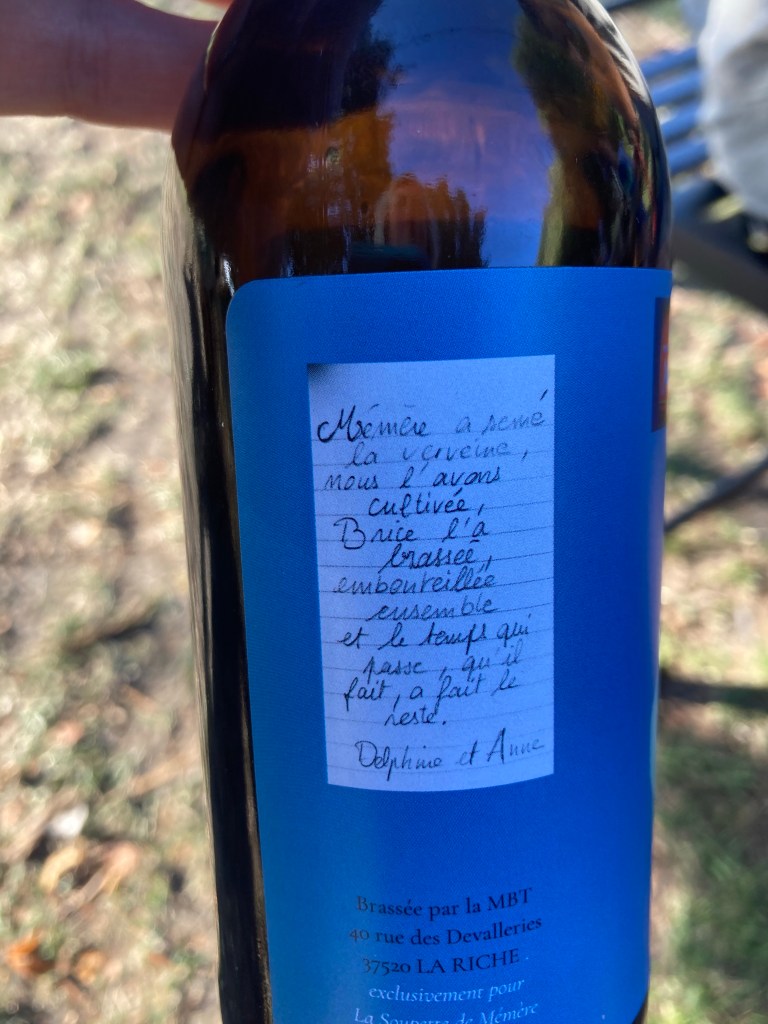 Mémère a semé
la verveine,
nous l'avons
cultivée,
Brice l'a
brassée,
embouteillée
ensemble
et le temps qui
passe, qu'il
fait, a fait le
reste.
Delphine et Anne
Brassée par la MBT
40 rue des Devalleries
37520 LA RICHE
exclusivement pour
La Soupette de Mémère